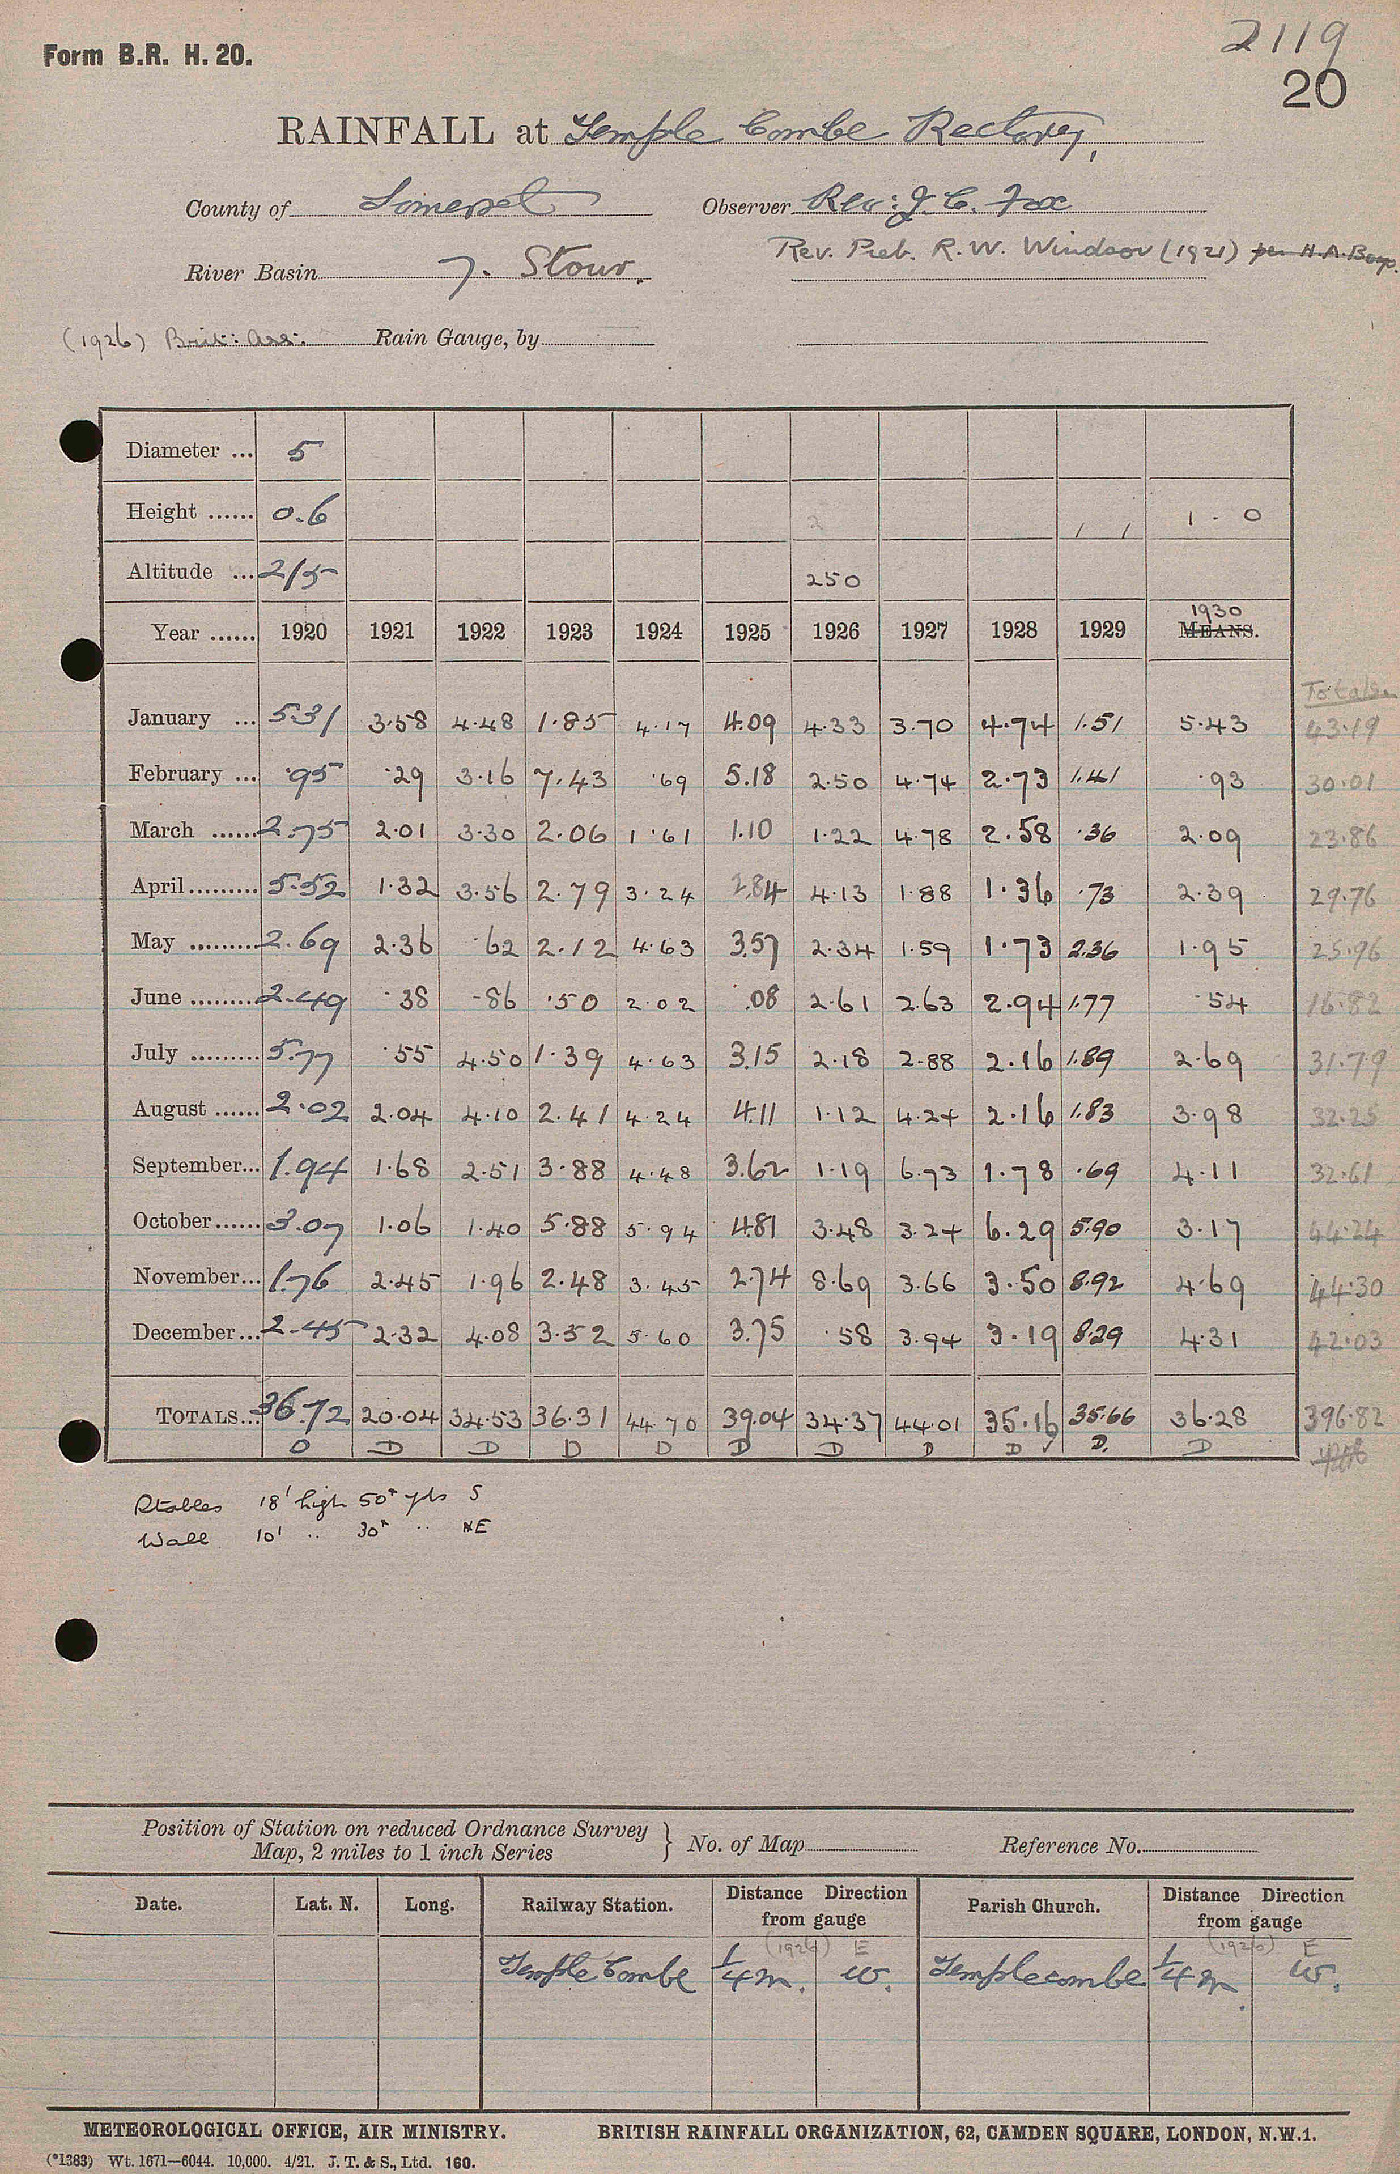 Form B.R. H. 20.
2119
20
RAINFALL at Temple Combe Rectory,
County of Somerset Observer Rev: J. C. Fox
Rev. Preb. R. W. Windsor (1921)
River Basin 7. Stour.
(1926) Brit: Ass: Rain Gauge, by
Diameter ... 5
Height ...... 0.6 2 1 1 1 . 0
Altitude ... 215 250
1930
Year ...... 1920 1921 1922 1923 1924 1925 1926 1927 1928 1929 MEANS.
Totals
January ... 5.31 3.58 4.48 1.85 4.17 4.09 4.33 3.70 4.74 1.51 5.43 43.19
February ... .95 .29 3.16 7.43 .69 5.18 2.50 4.74 2.73 1.41 .93 30.01
March ...... 2.75 2.01 3.30 2.06 1.61 1.10 1.22 4.78 2.58 .36 2.09 23.86
April ......... 5.52 1.32 3.56 2.79 3.24 2.84 4.13 1.88 1.36 .73 2.39 29.76
May ......... 2.69 2.36 .62 2.12 4.63 3.57 2.34 1.59 1.73 2.36 1.95 25.96
June ......... 2.49 .38 .86 .50 2.02 .08 2.61 2.63 2.94 1.77 .54 16.82
July ......... 5.77 .55 4.50 1.39 4.63 3.15 2.18 2.88 2.16 1.89 2.69 31.79
August ...... 2.02 2.04 4.10 2.41 4.24 4.11 1.12 4.24 2.16 1.83 3.98 32.25
September... 1.94 1.68 2.51 3.88 4.48 3.62 1.19 6.73 1.78 .69 4.11 32.61
October ...... 3.07 1.06 1.40 5.88 5.94 4.81 3.48 3.24 6.29 5.90 3.17 44.24
November... 1.76 2.45 1.96 2.48 3.45 2.74 8.69 3.66 3.50 8.92 4.69 44.30
December... 2.45 2.32 4.08 3.52 5.60 3.75 .58 3.94 3.19 8.29 4.31 42.03
TOTALS... 36.72 20.04 34.53 36.31 44.70 39.04 34.37 44.01 35.16 35.66 36.28 396.82
D D D D D D D D D ✓ D. D
Stables 18' high 50ft yds S
Wall 10' .. 30ft .. NE
Position of Station on reduced Ordnance Survey
Map, 2 miles to 1 inch Series } No. of Map Reference No.
Date. Lat. N. Long. Railway Station. Distance Direction from gauge Parish Church. Distance Direction from gauge
(1926) E (1926) E
Temple Combe 1/4 m. W. Templecombe 1/4 m. W.
METEOROLOGICAL OFFICE, AIR MINISTRY. BRITISH RAINFALL ORGANIZATION, 62, CAMDEN SQUARE, LONDON, N.W.1.
(*1383) Wt. 1671—6044. 10,000. 4/21. J. T. & S., Ltd. 160.